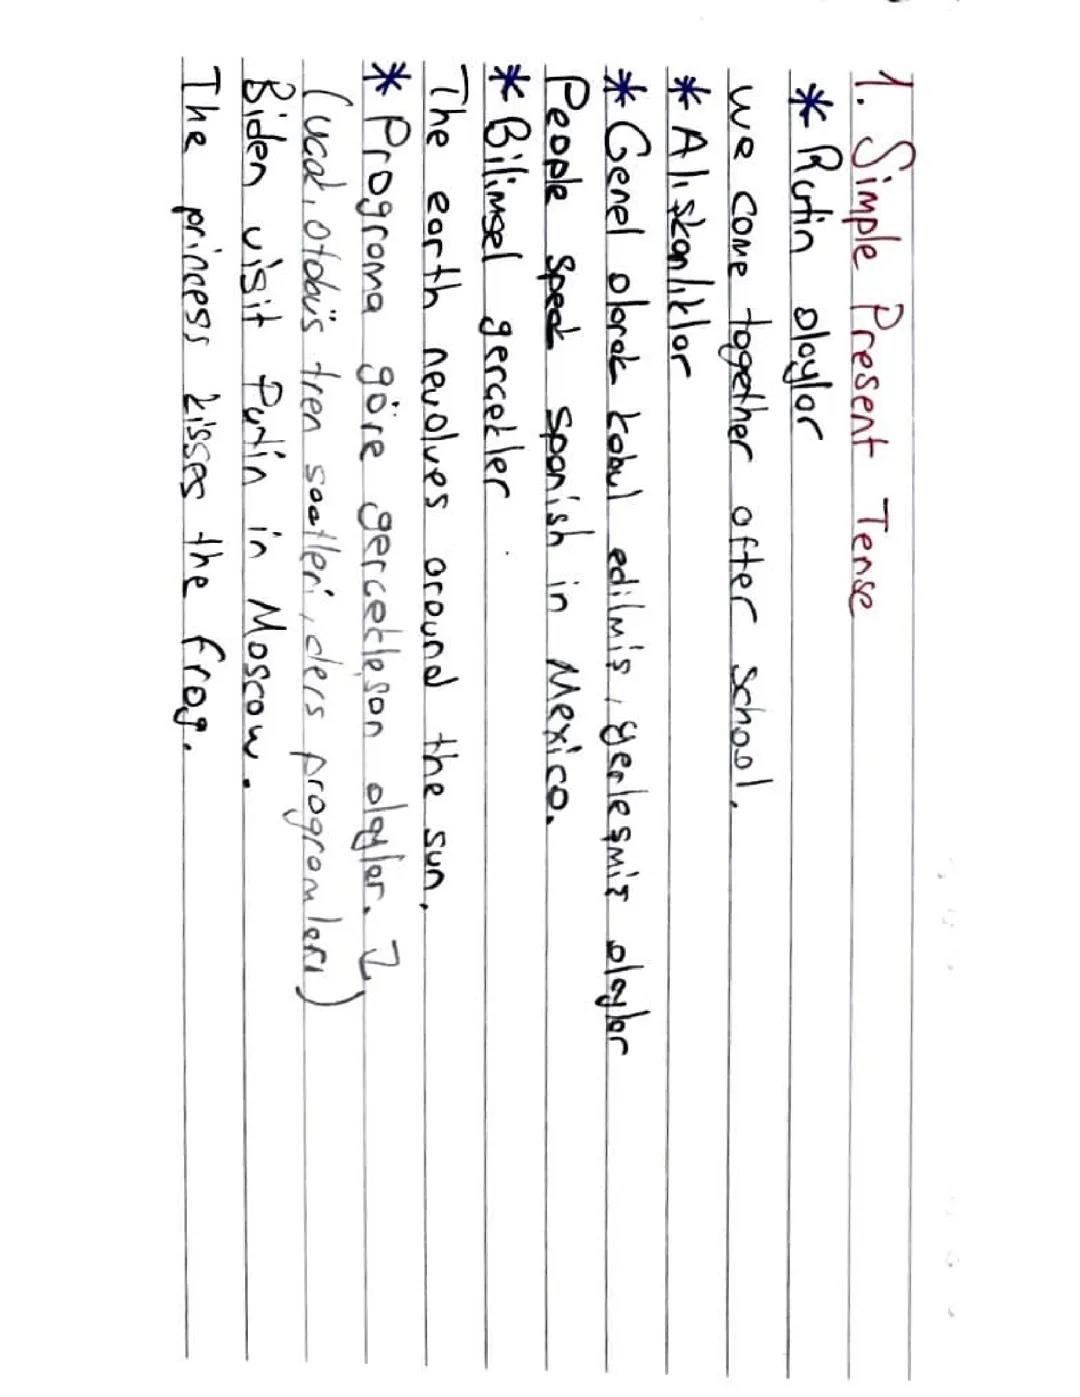 1. Simple Present Tense
* Rutin olaylar
we come together after school.
* Alışkanlıklar
* Genel olarak kabul edilmiş, yerleşmiş olaylar
People speak spanish in Mexico.
* Bilimsel gerçekler
The earth revolves around the sun.
* Programa göre gerçekleşen olaylar.
(uçak, otobüs tren saatleri, ders programları)
Biden visit Putin in Moscow.
The princess kisses the frog.